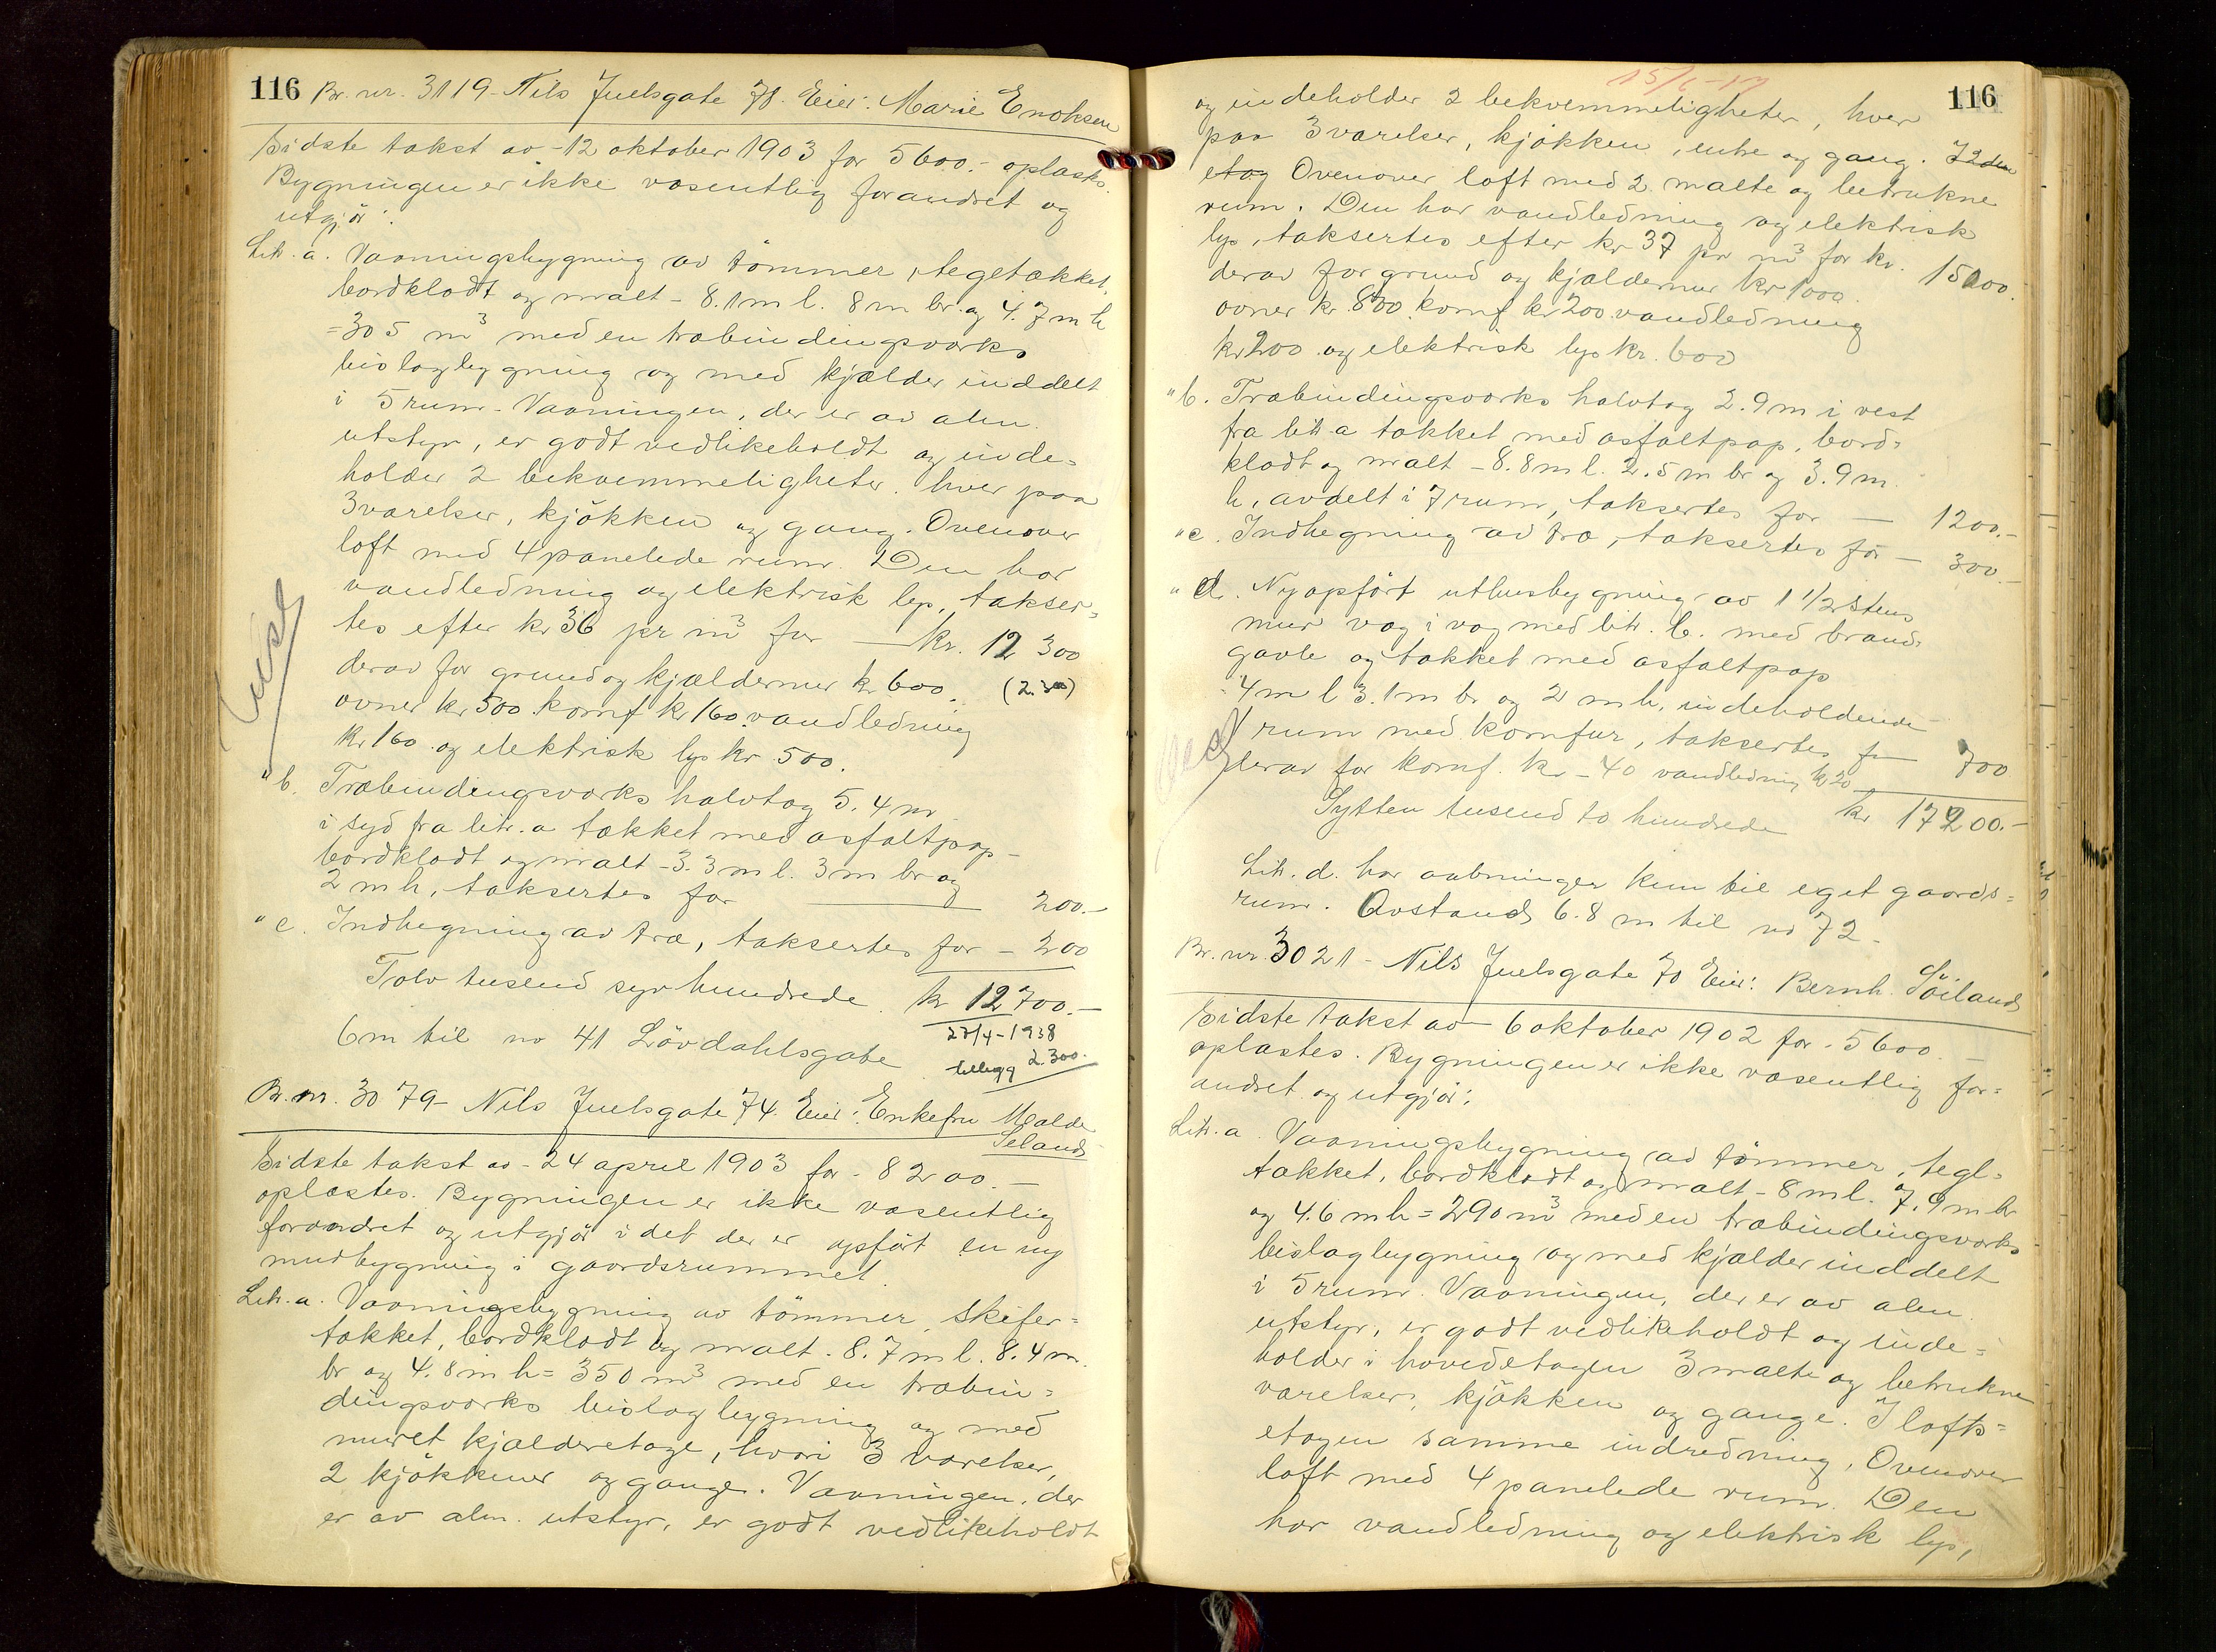 116 Br. nr. 3119 - Nils Juelsgate 78. Eier: Marie Enoksen
Sidste takst av - 12 oktober 1903 for 5600.- oplæstes.
Bygningen er ikke væsentlig forandret og
utgjör:
Litr. a. Vaaningsbygning av tömmer, tegltækket,
bordklædt og malt - 8.1 m l. 8 m br. og 4.7 m h
= 305 m³ med en træbindingsværks
bislagbygning og med kjælder inddelt
i 5 rum. Vaaningen, der er av alm.
utstyr, er godt vedlikeholdt og inde=
holder 2 bekvemmeligheter, hver paa
3 værelser, kjökken og gang. Ovenover
loft med 4 panelede rum. Den har
vandledning og elektrisk lys, takser=
tes efter kr 36 pr m³ for — kr. 12 300
derav for grund og kjældermur kr 600. (2.300)
ovner kr 300. komf kr 160. vandledning
kr 160. og elektrisk lys kr 500.
" b. Træbindingsværks halvtag 5.4 m
i syd fra litr. a tækket med asfaltpap -
bordklædt og malt - 3.3 m l. 3 m br og
2 m h, taksertes for — 200.-
" c. Indhegning av træ, taksertes for - 200
Tolv tusend syv hundrede kr 12 700.-
27/4-1938
6 m til no 41 Lövdahlsgate
tillegg 2.300.
Br. nr. 3079 - Nils Juelsgate 74. Eier: Enkefru Malde
Seland
Sidste takst av - 24 april 1903 for - 8200.-
oplæstes. Bygningen er ikke væsentlig
forandret og utgjör i det der er opfört en ny
murbygning i gaardsrummet.
Litr. a. Vaaningsbygning av tömmer, skifer=
tækket, bordklædt og malt. 8.7 m l. 8.4 m.
br og 4.8 m h = 350 m³ med en træbin=
dingsværks bislagbygning og med
muret kjælderetage, hvori 3 værelser,
2 kjökkener og gange. Vaaningen, der
er av alm. utstyr, er godt vedlikeholdt
116
og indeholder 2 bekvemmeligheter, hver
paa 3 værelser, kjökken, entre og gang. I 2den
etag Ovenover loft med 2 malte og betrukne
rum. Den har vandledning og elektrisk
lys, taksertes efter kr 37 pr m³ for kr. 15000.
derav for grund og kjældermur kr 1000.
ovner kr. 800. komf kr 200. vandledning
kr 200 og elektrisk lys kr. 600
" b. Træbindingsværks halvtag 2.9 m i vest
fra litr a tækket med asfaltpap, bord=
klædt og malt - 8.8 m l. 2.5 m br og 3.9 m.
h, avdelt i 7 rum, taksertes for — 1200.-
" c. Indhegning av træ, taksertes for — 300.-
" d. Nyopfört uthusbygning av 1 1/2 stens
mur væg i væg med litr. b. med brand=
gavle og tækket med asfaltpap
- 4 m l 3.1 m br og 2 m h, indeholdende
1 rum med komfur, taksertes for — 700
derav for komf. kr - 40 vandledning kr 20
Sytten tusend to hundrede kr 17200.-
Litr. d. har aabninger kun til eget gaards=
rum. Avstand 6.8 m til no 72 -
Br. nr. 3021 - Nils Juelsgate 70 Eier: Bernh. Söiland
Sidste takst av 6 oktober 1902 for - 5600.-
oplæstes. Bygningen er ikke væsentlig for=
andret og utgjör:
Litr. a. Vaaningsbygning av tömmer, tegl=
tækket, bordklædt og malt - 8 m l. 7.9 m br
og 4.6 m h = 290 m³ med en træbindingsværks
bislagbygning og med kjælder inddelt
i 5 rum. Vaaningen, der er av alm.
utstyr, er godt vedlikeholdt og inde=
holder i hovedetagen 3 malte og betrukne
værelser, kjökken og gange. I lofts=
etagen samme indredning. Ovenover
loft med 4 panelede rum. Den
har vandledning og elektrisk lys,